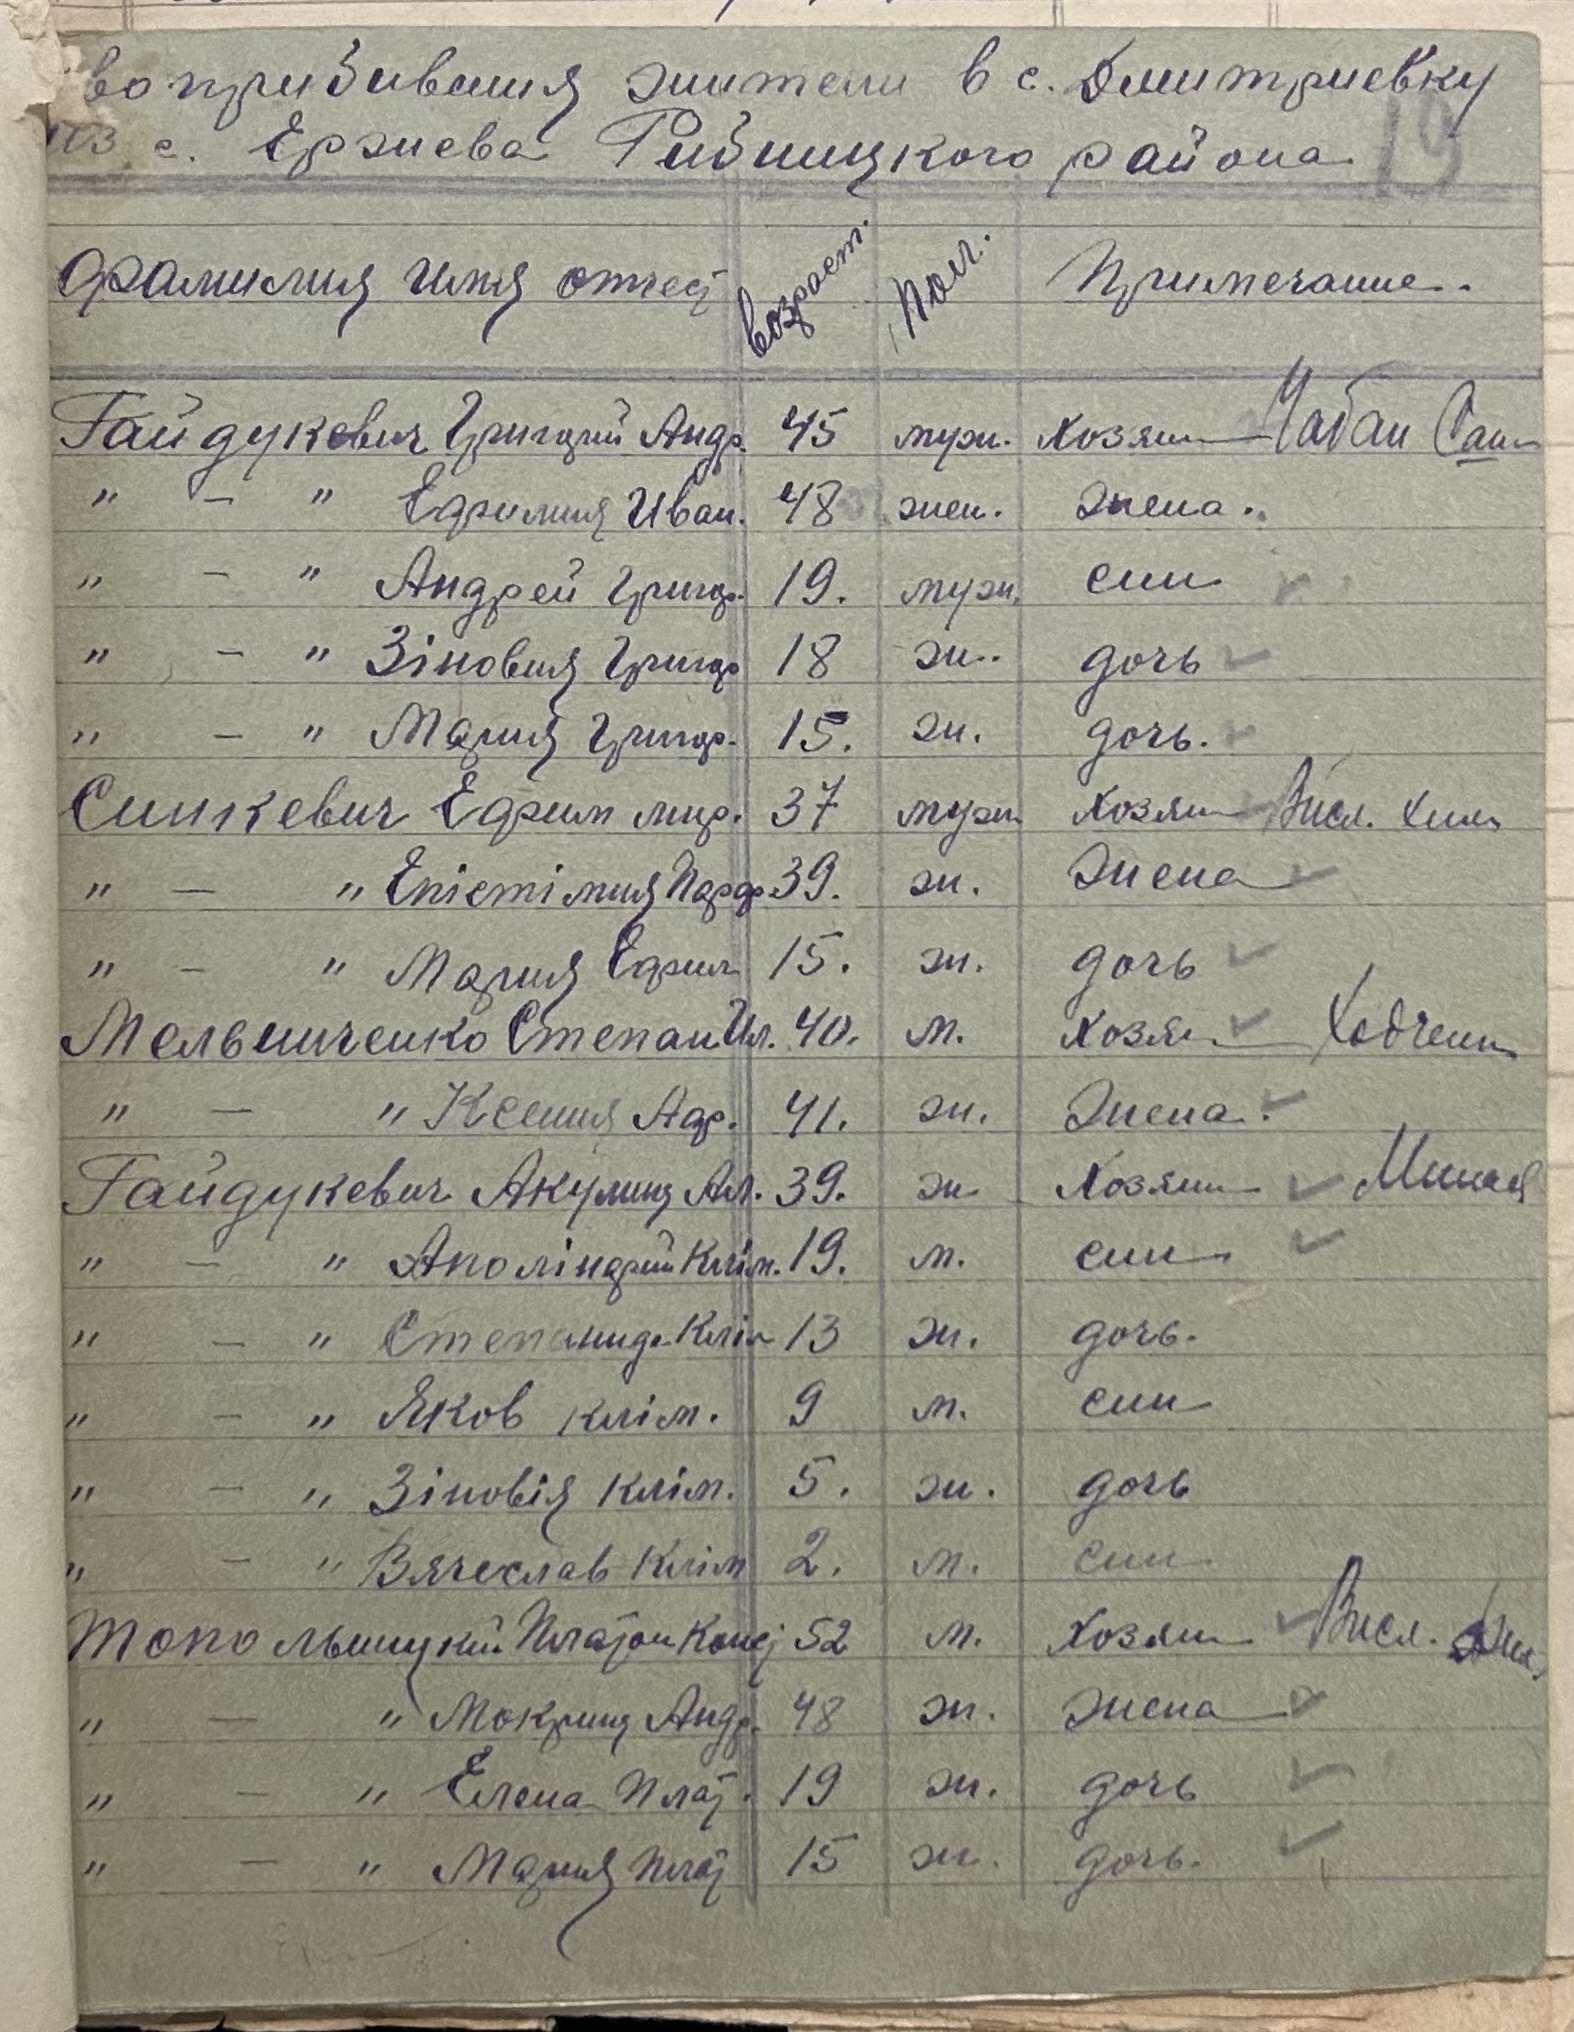 во прибивания жители в с. Дмитриевку
из с. Ержова Рибницкого района 19
Фамилия имя отчес возраст. Пол. Примечание.
Гайдукевич Григорий Андр. 45 муж. хозяин Чабан Сав
" - " Ефимия Иван. 48 жен. жена.
" - " Андрей Григор. 19. муж. син
" - " Зіновия Григор 18 ж. дочь
" - " Мария Григор. 15. ж. дочь.
Синкевич Ефим мир. 37 муж хозяин Висл.
" - " Епістімия Парф. 39. ж. жена
" - " Мария Ефим 15. ж. дочь
Мельниченко Степан Ил. 40. м. хозяин
" - " Ксения Адр. 41. ж. жена.
Гайдукевич Акулина Ал. 39. ж хозяин
" - " Аполінарий Клім. 19. м. син
" - " Степанида Клім 13 ж. дочь.
" - " Яков клім. 9 м. син
" - " Зіновія клім. 5. ж. дочь
" - " Вячеслав клім 2. м. син
Топольницкий Платон Конс 52 м. хозяин Висл.
" - " Мокрина Андр. 48 ж. жена
" - " Елена Плат. 19 ж. дочь
" - " Мария Плат 15 ж. дочь.